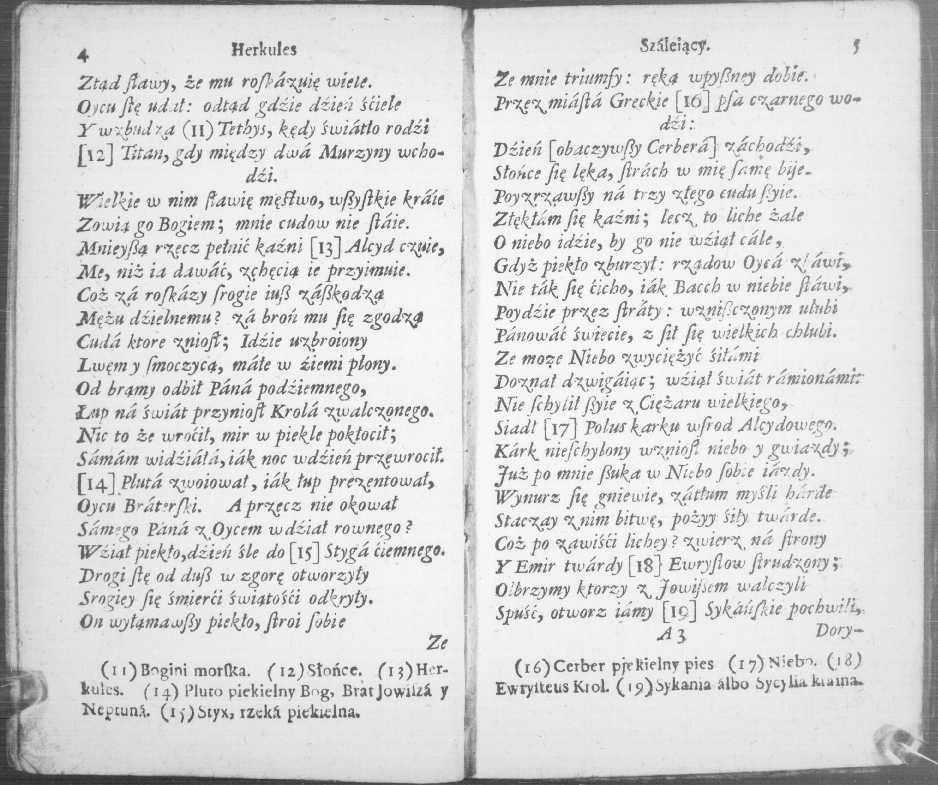 4 Herkules
Ztąd ſławy, że mu roſkázuię wiele.
Oycu ſię udał: odtąd gdzie dzień śćiele
Y wzbudza (11) Tethys, kędy świátło rodźi
[12] Titan, gdy między dwá Murzyny wcho-
dźi.
Wielkie w nim ſławię męſtwo, wſzyſtkie kráie
Zowią go Bogiem; mnie cudow nie ſtáie.
Mnieyſzą rzecz pełnić kaźni [13] Alcyd czuie,
Me, niż ia dawáć, zchęcią ie przyimuie.
Coż zá roſkázy ſrogie iuſz záſzkodzą
Mężu dzielnemu? zá broń mu ſię zgodzą
Cudá ktore znioſł; Idzie uzbroiony
Lwęm y ſmoczycą, máłe w źiemi plony.
Od bramy odbił Páná podźiemnego,
Łup ná świát przynioſł Krolá zwalczonego.
Nic to że wroćił, mir w piekle pokłoćił;
Sámám widźiáłá, iák noc wdźień przewroćił.
[14] Plutá zwoiował, iák łup prezentował,
Oycu Bráterſki. A przecz nie okował
Sámego Páná z Oycem wdźiał rownego?
Wźiął piekło, dźień śle do [15] Stygá ćiemnego.
Drogi ſię od duſz w zgorę otworzyły
Srogiey ſię śmierći świątośći odkryły.
On wyłámawſzy piekło, ſtroi ſobie
Ze
(11) Bogini morſka. (12) Słońce. (13) Her-
kules. (14) Pluto piekielny Bog, Brát Jowiſzá y
Neptuná. (15) Styx, rzeká piekielna.
Száleiący. 5
Ze mnie triumfy: ręką wpyſzney dobie.
Przez miáſtá Greckie [16] pſa czarnego wo-
dźi:
Dźień [obaczywſzy Cerberá] záchodźi,
Słońce ſię lęka, ſtrách w mię ſamę bije.
Poyzrzawſzy ná trzy złego cudu ſzyie.
Zlękłám ſię kaźni; lecz to liche żale
O niebo idzie, by go nie wźiął cále,
Gdyż piekło zburzył: rządow Oycá
Nie ták ſię ćicho, iák Bacch w niebie ſtáwi,
Poydźie przez ſtráty: wzniſzczonym ulubi
Pánowáć świecie, z ſił ſię wielkich chlubi.
Ze może Niebo zwyciężyć śiłámi
Doznał dzwigáiąc; wźiął świát rámionámi:
Nie ſchylił ſzyie z Ciężaru wielkiego,
Siadł [17] Polus karku wſrod Alcydowego.
Kárk nieſchylony wznioſł niebo y gwiazdy;
Już po mnie ſzuka w Niebo ſobie iázdy.
Wynurz ſię gniewie, zátłum myśli hárde
Staczay znim bitwę, pożyy śiły twárde.
Coż po zawiśći lichey? zwierz ná ſtrony
Y Emir twárdy [18] Ewryſtow ſtrudzony;
Olbrzymy ktorzy z Jowiſzem walczyli
Spuść, otworz iámy [19] Sykáńſkie pochwili,
A 3 Dory-
(16) Cerber piekielny pies (17) Niebo. (18)
Ewryſteus Krol. (19) Sykania álbo Sycylia kraina.